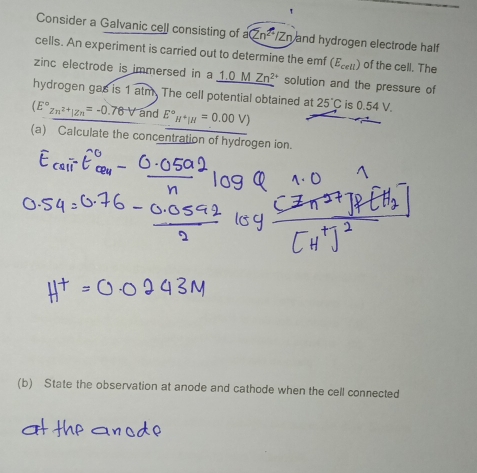 Consider a Galvanic cell consisting of a Zn²⁺/Zn and hydrogen electrode half
cells. An experiment is carried out to determine the emf (E_cell) of the cell. The
zinc electrode is immersed in a 1.0 M Zn²⁺ solution and the pressure of
hydrogen gas is 1 atm. The cell potential obtained at 25°C is 0.54 V.
(E°Zn²⁺|Zn = -0.76 V and E°H⁺|H = 0.00 V)
(a) Calculate the concentration of hydrogen ion.
E cell = E° cell - 0.0592/n log Q
1.0 1
0.54 = 0.76 - 0.0592/2 log [Zn²⁺]P[H₂]/[H⁺]²
H⁺ = 0.0243M
(b) State the observation at anode and cathode when the cell connected
at the anode